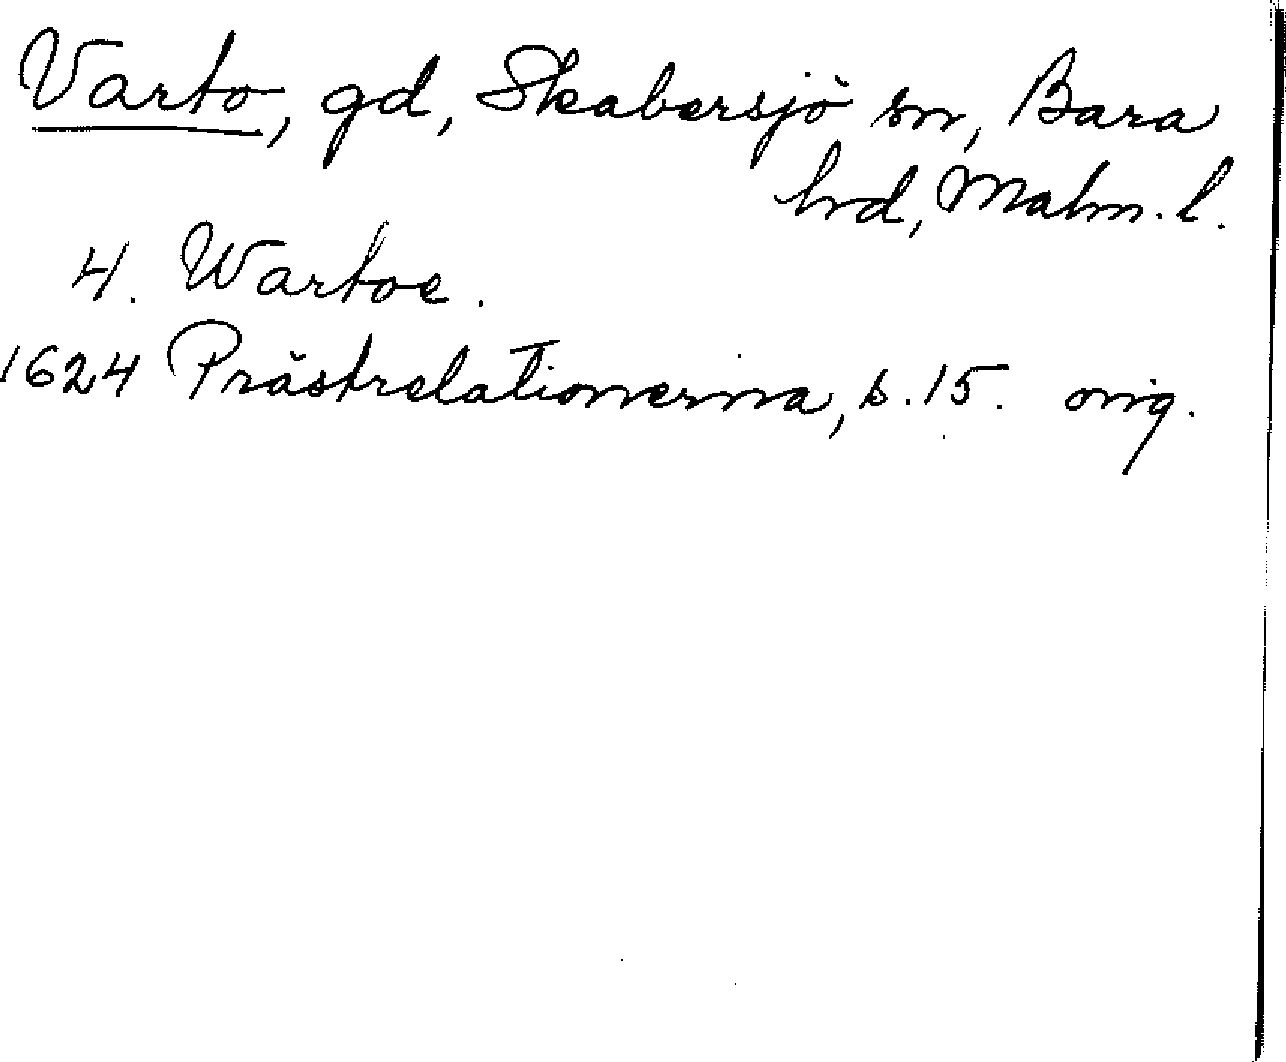 Varto, gd, Skabersjö sn, Bara
hrd, Malm. l.
4. Wartoe.
1624 Prästrelationerna, s. 15. orig.